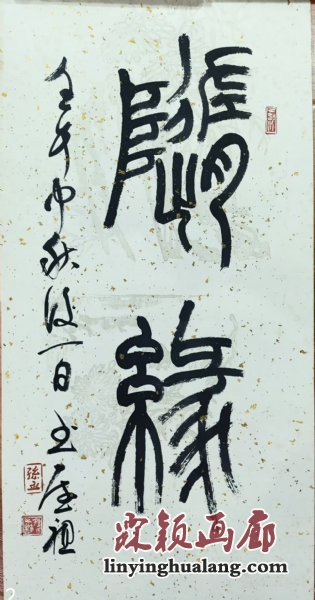 隨緣
壬午中秋後一日
霖颖画廊
linyinghualang.com